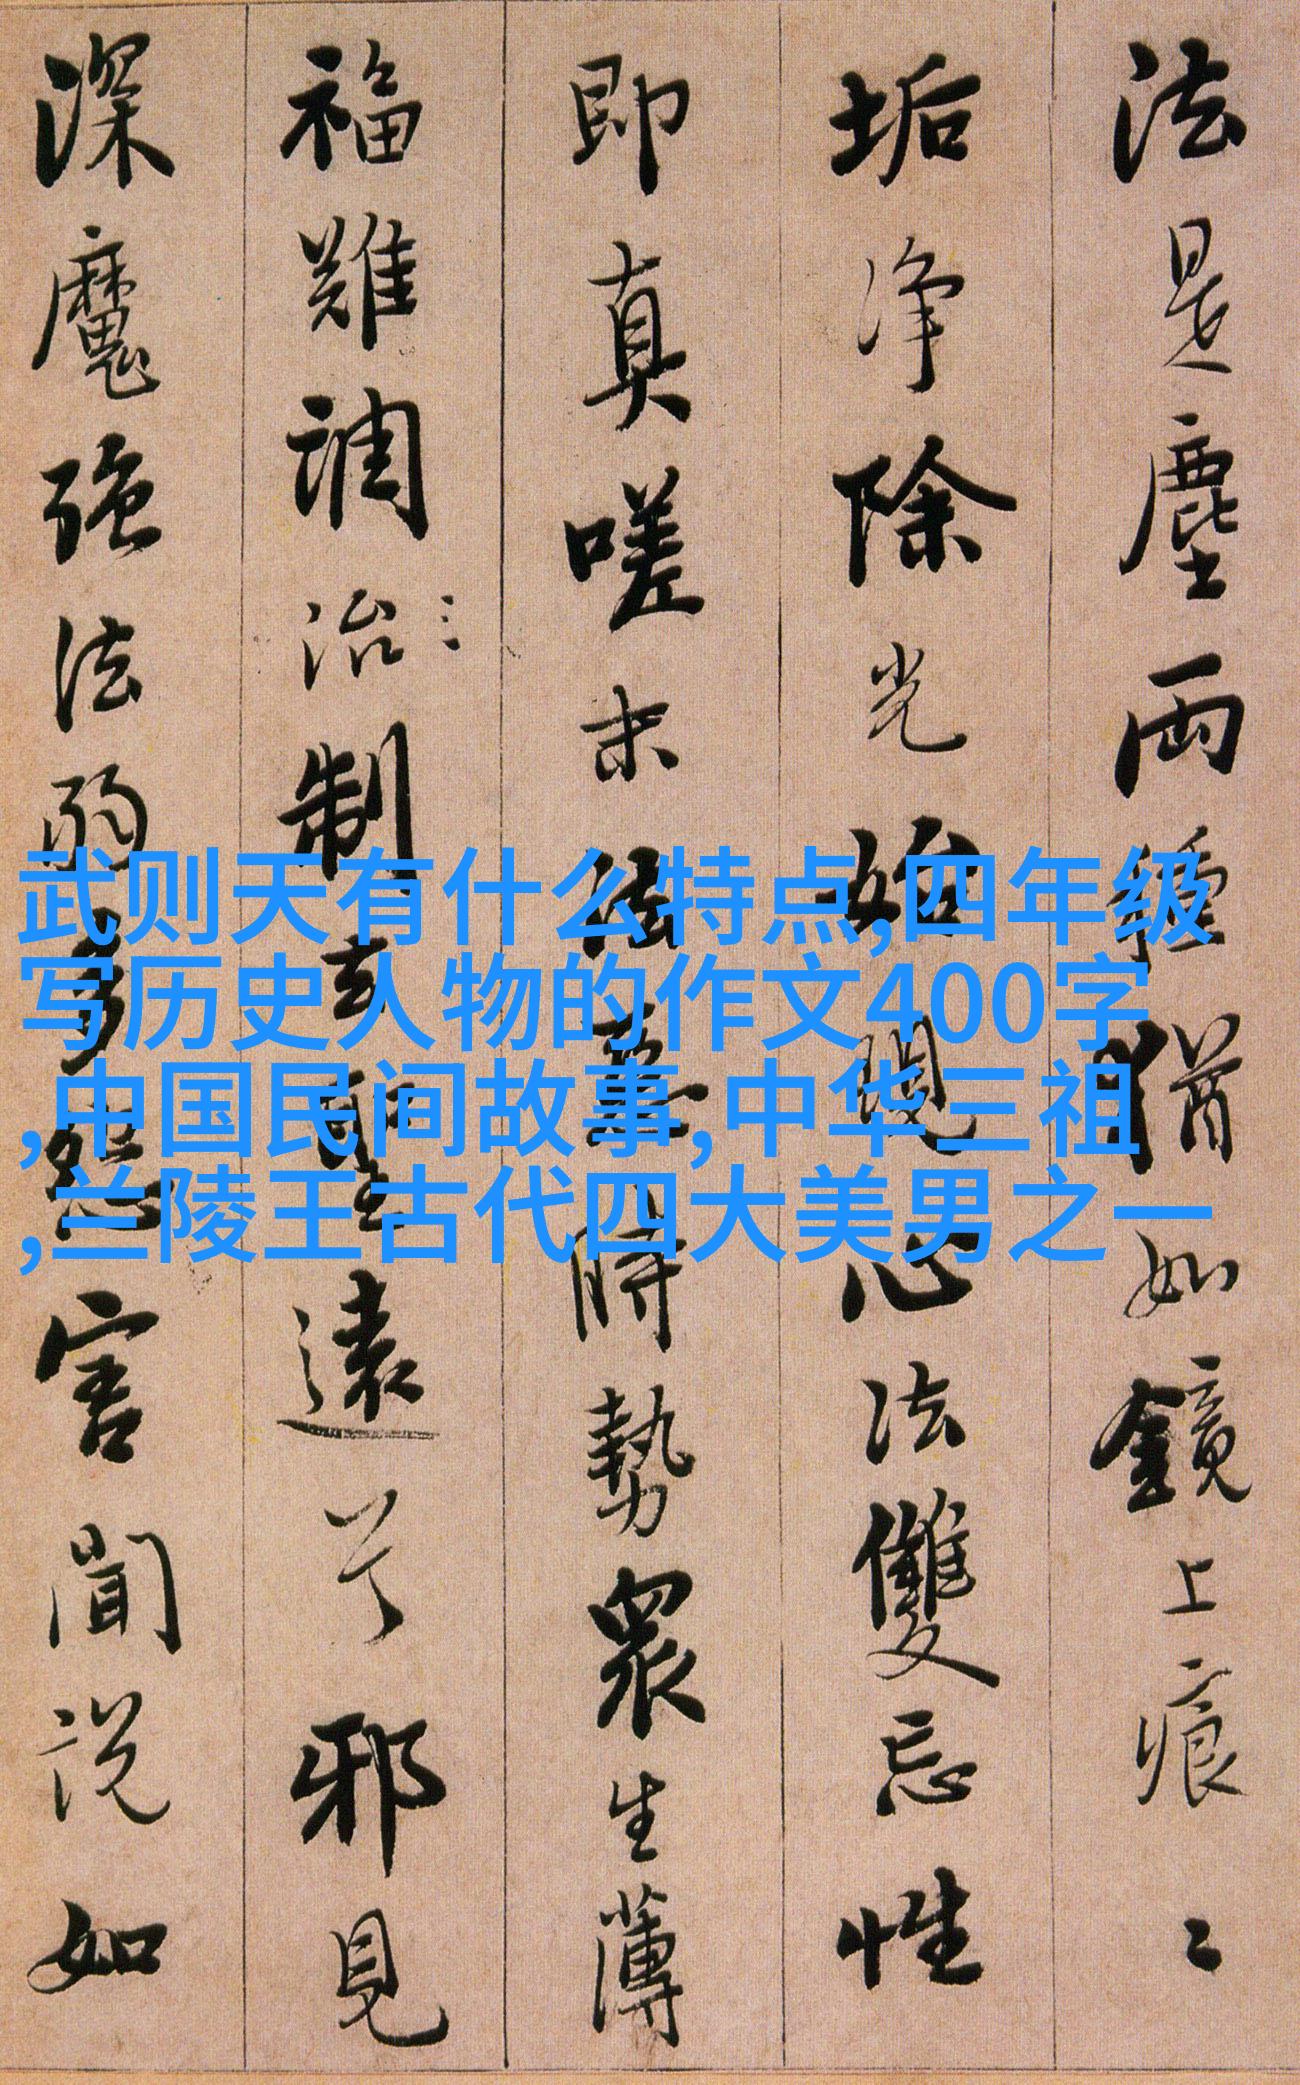 法是塵兩種猶如鏡上痕〻
垢净除光始現心法雙忘性
即真嗟末法惡時勢衆生薄
福難調治制去聖遠兮邪見
深魔强法弱多怨害聞說如
武则天有什么特点,四年级
写历史人物的作文400字
,中国民间故事,中华三祖
,兰陵王古代四大美男之一